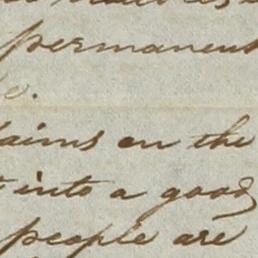 permanent
e.
laims on the
t into a good
people are